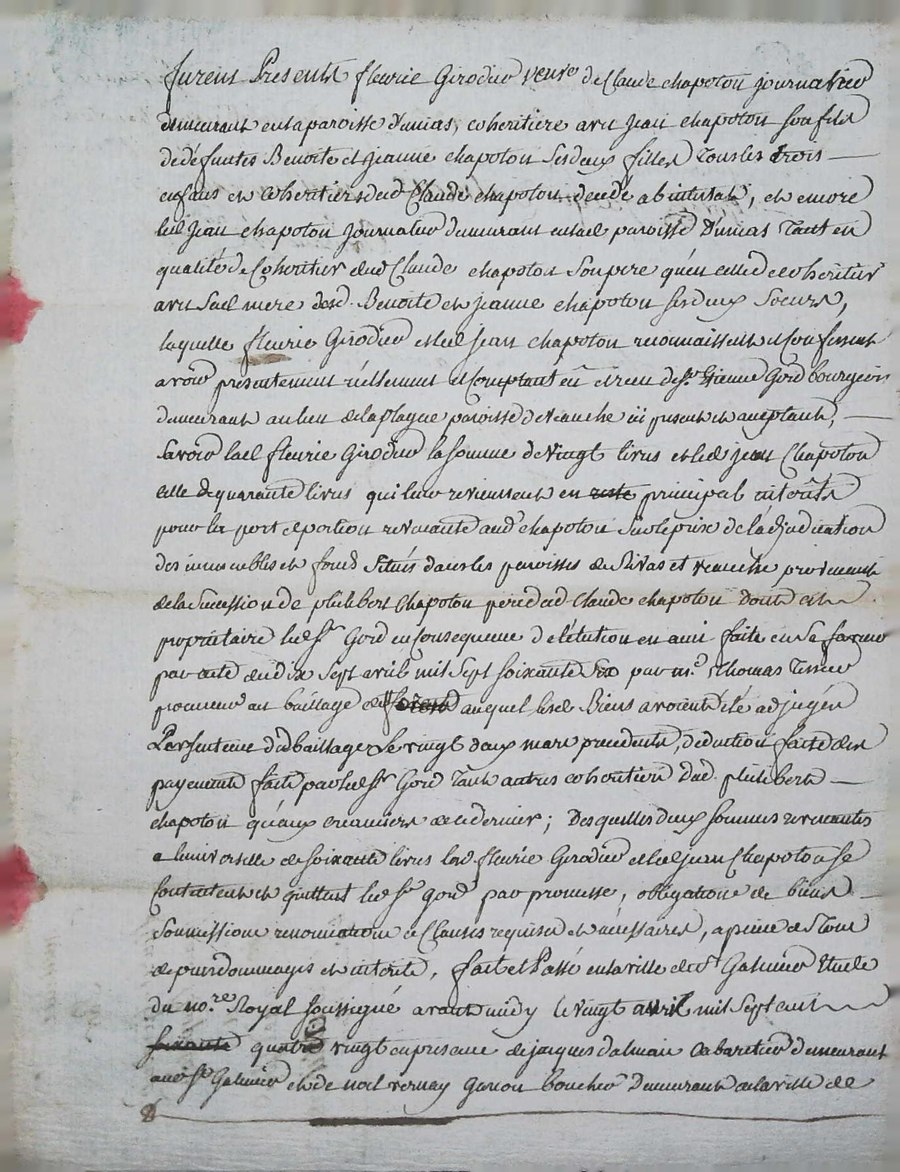 furent Presents fleurie Girodier veuve de Claude chapoton journalier
demeurant en la paroisse d'unias, coheritiere avec Jean chapoton son fils
de défuntes Benoite et jeanne chapoton ses deux filles Tous les trois
enfans et coheritiers dud Claude chapoton decedé abintestat, et encore
led Jean chapoton Journalier demeurant en lad paroisse D'unias Tant en
qualité de Coheritier dud Claude chapoton son pere qu'en celle de coheritier
avec sad mere desd. Benoite et jeanne chapoton ses deux soeurs,
laquelle fleurie Girodier et led Jean chapoton reconnaissent et confessent
avoir présentement réellement et Comptant eû et reçu de Sr. Etienne Gord bourgeois
demeurant au lieu de la plagne paroisse de veauche ici present et acceptant,
Savoir lad fleurie Girodier la somme de vingt livres et led jean Chapoton
celle de quarante livres qui leur reviennent en principal interêts
pour les part et portion revenante aud chapoton sur le prix de l'adjudication
des immeubles et fonds situés dans les paroisses de Rivas et veauche provenant
de la Succession de philibert Chapoton pere dud Claude chapoton dont est
propriétaire led Sr Gord en Consequence de l'élection en ami faite en sa faveur
par acte du dix sept avril mil sept soixante six par me. Thomas
procureur au bailliage de forest auquel lesd Biens avoient été adjugés
Par sentence dud bailliage le vingt deux mars precedent, deduction faite des
payements faits par led Sr Gord Tant autres coheritiers dud philibert
chapoton qu'aux creanciers de ce dernier; Desquelles deux sommes revenantes
a l'universelle de soixante livres lesd fleurie Girodier et led jean Chapoton se
contentent et quittent led Sr Gord par promesse, obligation de biens
Soumissions renonciations et Clauses requises et nécessaires, a peine de Tous
depens dommages et interêts, fait et Passé en la ville de St Galmier Etude
du nore. Royal soussigné avant midy le vingt avril mil sept cent
soixante quatre vingt en presence de jacques dalmais Cabaretier demeurant
aud St Galmier et de noel vernay garçon boucher Demeurant en la ville de